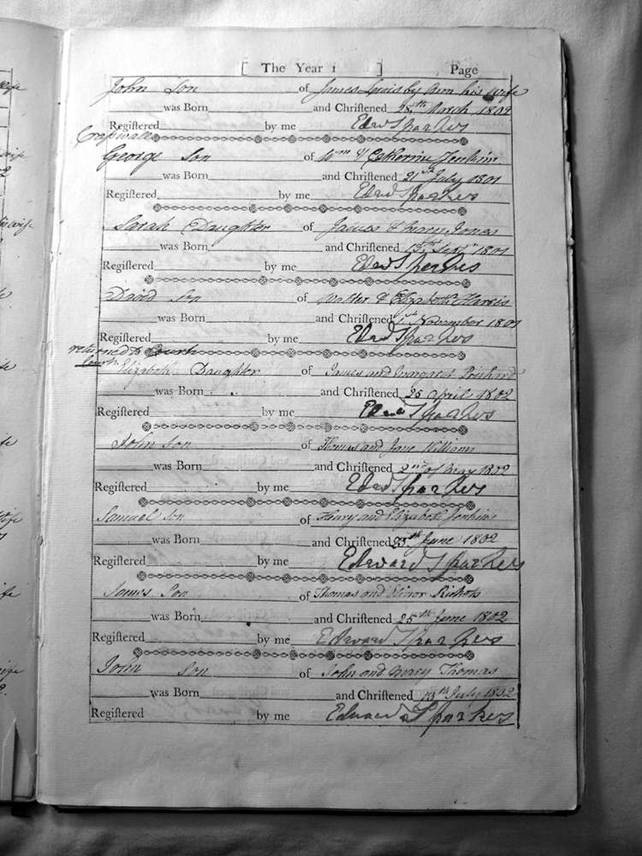 [ The Year 1 ] Page
John Son of James Lewis by Ann his Wife
was Born and Chriſtened 28th March 1802
Regiſtered by me Edwd Sparkes
George Son of Wm & Catherine Jenkin
was Born and Chriſtened 21st July 1801
Regiſtered by me Edwd Sparkes
Sarah Daughter of James & Mary Jones
was Born and Chriſtened 13th Sept 1801
Regiſtered by me Edwd Sparkes
David Son of Walter & Elizabeth Harris
was Born and Chriſtened November 1801
Regiſtered by me Edwd Sparkes
returned to Court
Elizabeth Daughter of James and Margaret Prichard
was Born and Chriſtened 25 April 1802
Regiſtered by me Edwd Sparkes
John Son of Thomas and Jane William
was Born and Chriſtened 2nd of May 1802
Regiſtered by me Edwd Sparkes
Samuel Son of Henry and Elizabeth Jenkins
was Born and Chriſtened June 1802
Regiſtered by me Edward Sparkes
James Son of Thomas and Elinor Rickets
was Born and Chriſtened 25th June 1802
Regiſtered by me Edward Sparkes
John Son of John and Mary Thomas
was Born and Chriſtened 18th July 1802
Regiſtered by me Edward Sparkes